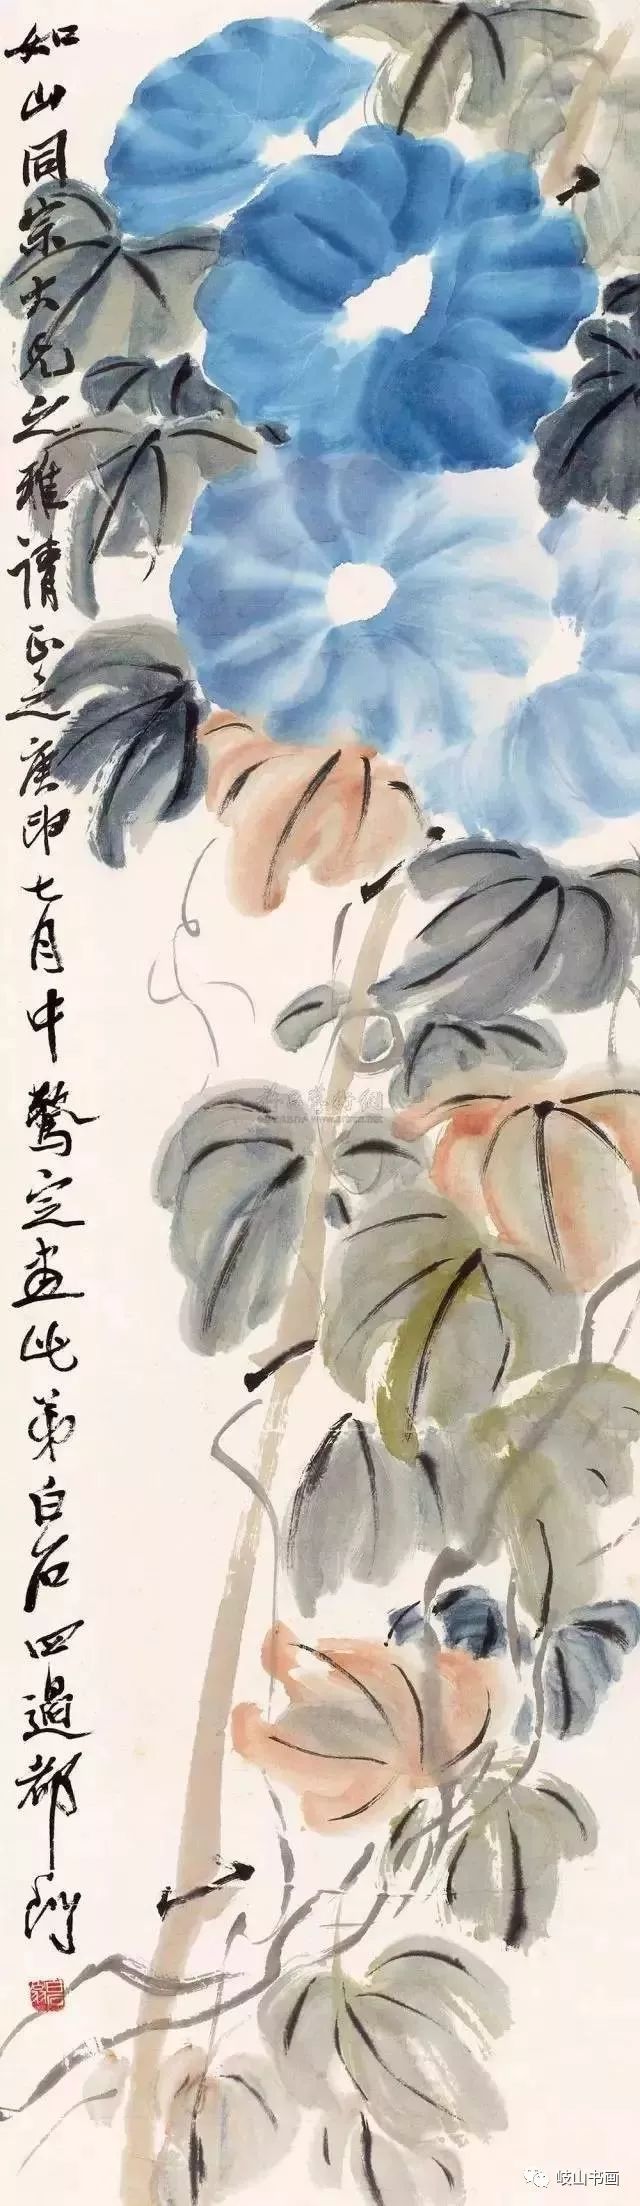 如山同宗大兄之雅请正之庚申七月中驚定画此弟白石四過都门
白石翁
岐山书画